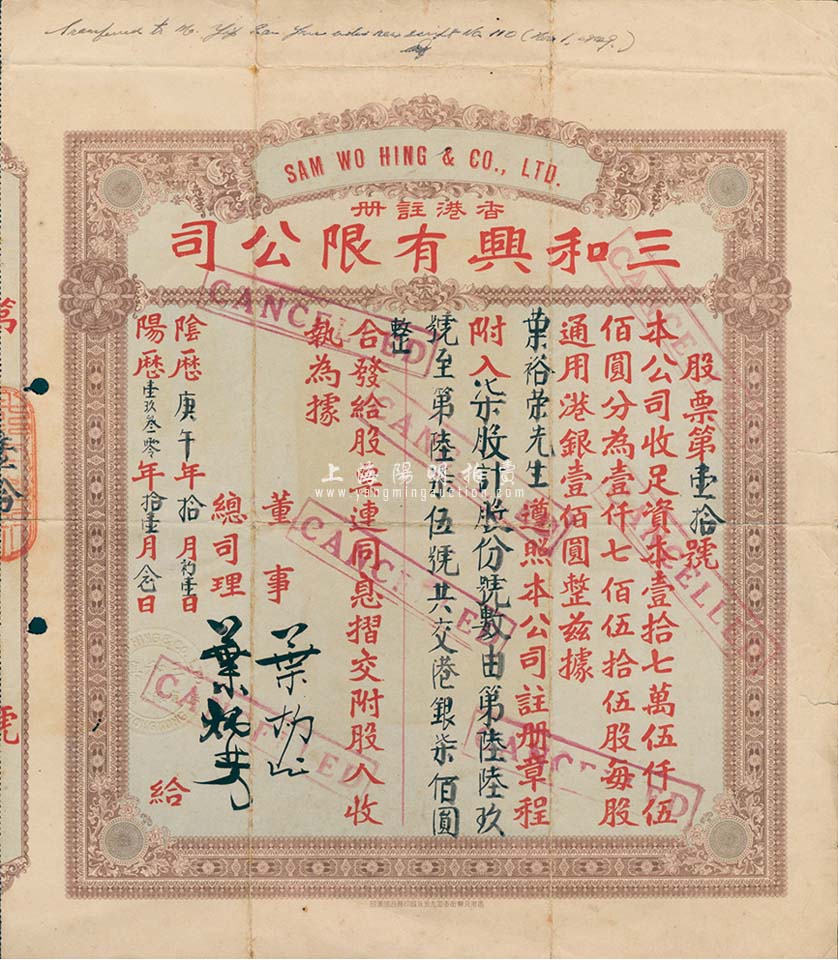 SAM WO HING & CO., LTD.
香港註冊
三和興有限公司
股票第壹拾號
本公司收足資本壹拾七萬伍仟伍
佰圓分為壹仟七佰伍拾伍股每股
通用港銀壹佰圓整茲據
葉裕荣先生遵照本公司註册章程
附入柒股計股份號數由第陸陸玖
號至第陸柒伍號共交港銀柒佰圓
整
合發給股票連同息摺交附股人收
執為據
董事
總司理
陰歷庚午年拾月初壹日
陽歷壹玖叁零年拾壹月念日
給
CANCELLED
CANCELLED
CANCELLED
CANCELLED
CANCELLED
CANCELLED
CANCELLED
上海陽明拍賣
www.yangmingauction.com
萬
號